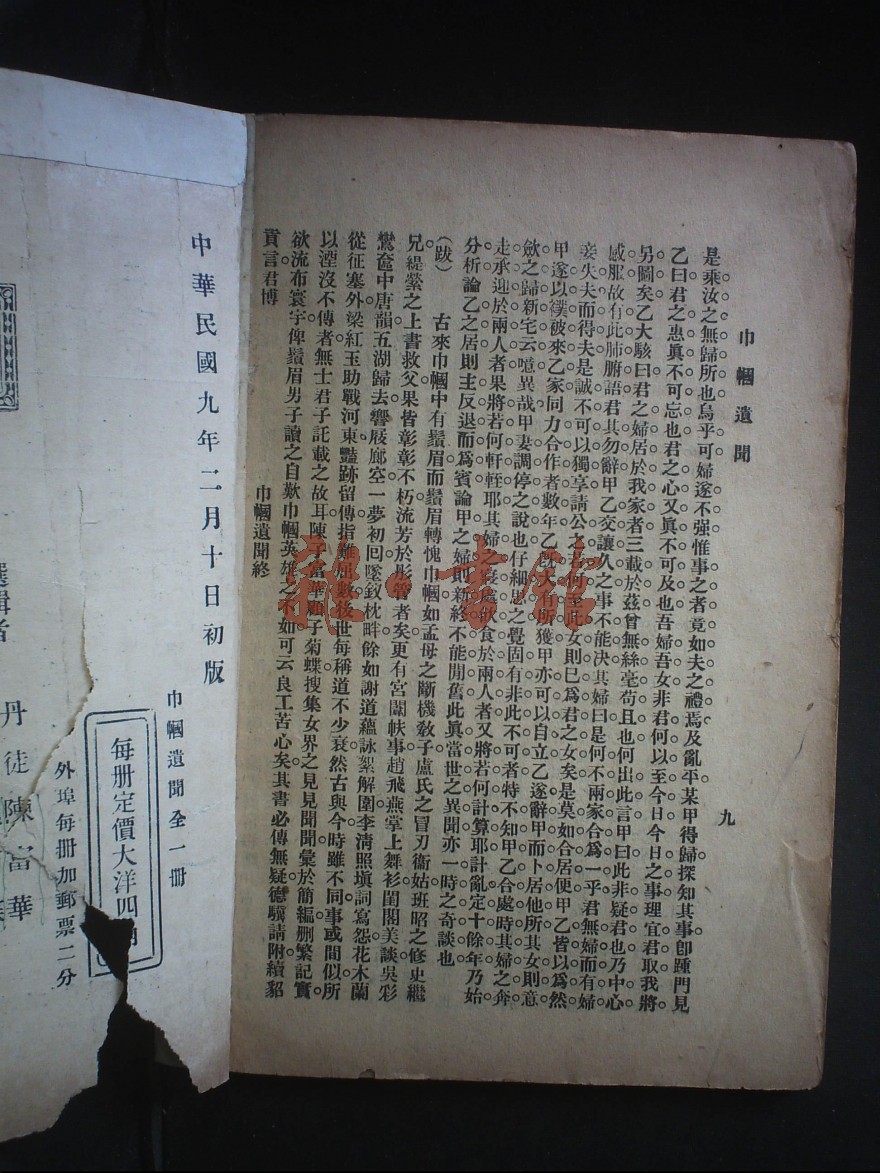 巾幗遺聞
九
是乘汝之無歸所也烏乎可婦遂不强惟事之者竟如夫之禮焉及亂平某甲得歸探知其事卽踵門見
乙曰君之惠眞不可忘也君之心又眞不可及也吾婦吾女非君何以至今日今日之事理宜君取我將
另圖矣乙大駭曰君之婦居於我家者三載於茲曾無絲毫苟且也何出此言甲曰此非疑君也乃中心
感服故有此肺腑語君其勿辭甲乙交讓久之事不能決其婦曰是何不兩家合爲一乎君無婦而有婦
妾失夫而得夫是誠不可以獨享請公之若何至此女則已爲君之女矣是莫如合居便甲乙皆以爲然
甲遂以襆被來乙家同力合作者數年乙旣大有所獲甲亦可以自立乙遂辭甲而卜居他所其女則意
斂之歸新宅云噫異哉甲妻調停之說也仔細思之覺固有非此不可者特不知甲乙合處時其婦之奔
走承迎於兩人者果將若何軒輊耶其婦之寢處飲食於兩人者又將若何計算耶計亂定十餘年乃始
分析論乙之居則主反退而爲賓論甲之婦則新終不能閒舊此眞當世之異聞亦一時之奇談也
(跋)　古來巾幗中有鬚眉而鬚眉轉愧巾幗如孟母之斷機敎子盧氏之冒刃衞姑班昭之修史繼
兄緹縈之上書救父果皆彰彰不朽流芳於彤管者矣更有宮闈軼事趙飛燕掌上舞衫閨閣美談吳彩
鸞奩中唐韻五湖歸去響屧廊空一夢初回墜釵枕畔餘如謝道蘊詠絮解圍李淸照塡詞寫怨花木蘭
從征塞外梁紅玉助戰河東豔跡留傳指難屈數後世每稱道不少衰然古與今時雖不同事或間似所
以湮沒不傳者無士君子託載之故耳陳子富華顧子菊蝶搜集女界之見見聞聞彙於簡編删繁記實
欲流布寰宇俾鬚眉男子讀之自歎巾幗英雄之不如可云良工苦心矣其書必傳無疑德驥請附續貂
賁言君博
巾幗遺聞終
中華民國九年二月十日初版
巾幗遺聞全一册
每册定價大洋四
外埠每册加郵票二分
選輯者
丹徒陳富華